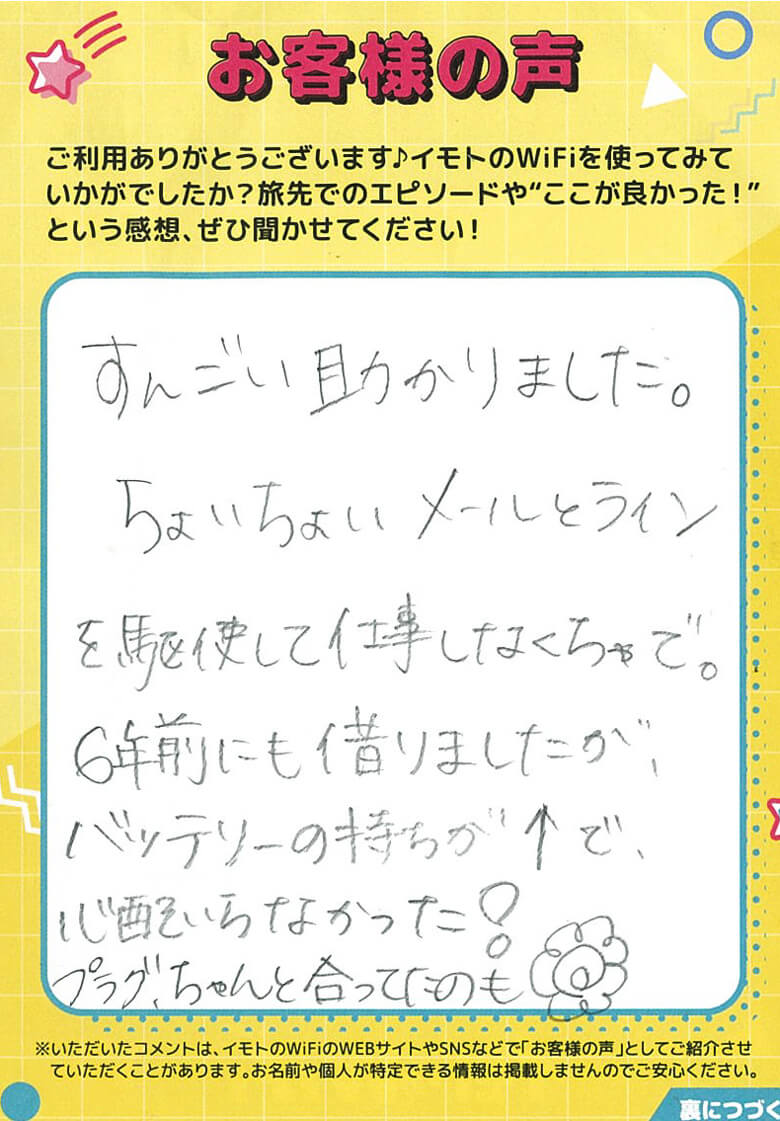 お客様の声
ご利用ありがとうございます♪イモトのWiFiを使ってみて
いかがでしたか？旅先でのエピソードや“ここが良かった！”
という感想、ぜひ聞かせてください！
すんごい助かりました。
ちょいちょいメールとライン
を駆使して仕事しなくちゃで。
6年前にも借りましたが、
バッテリーの持ちが↑で、
心配いらなかった！
プラグ、ちゃんと合ってたのも
※いただいたコメントは、イモトのWiFiのWEBサイトやSNSなどで「お客様の声」としてご紹介させ
ていただくことがあります。お名前や個人が特定できる情報は掲載しませんのでご安心ください。
裏につづく